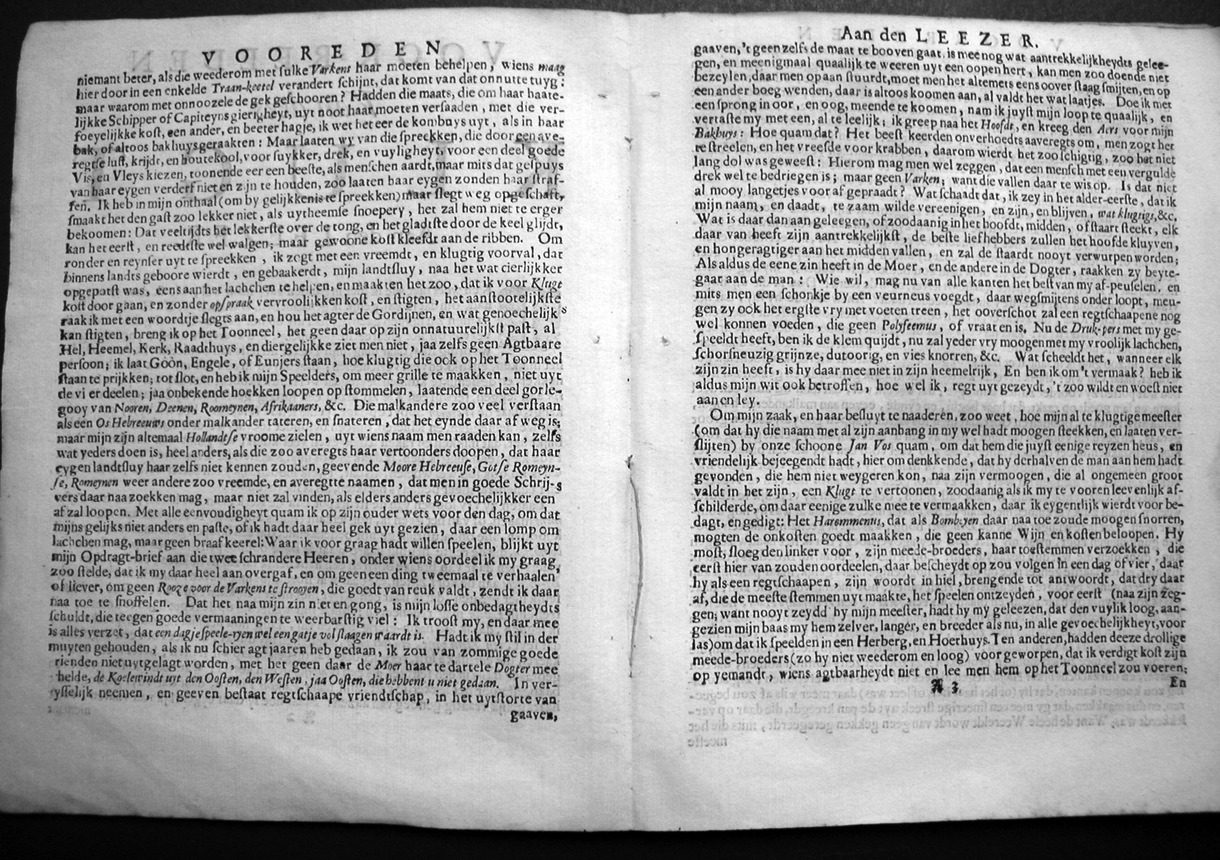 VOOREDEN
niemant beter, als die weederom met sulke Varkens haar moeten behelpen, wiens maag
hier door in een enkelde Traan-keetel verandert schijnt, dat komt van dat onnutte tuyg:
maar waarom met onnoozele de gek geschooren? Hadden die maats, die om haar haate-
lijkke Schipper of Capiteyns gierigheyt, uyt noot haar moeten versaaden, met die ver-
foeyelijkke kost, een ander, en beeter hagje, ik wet het eer de kombuys uyt, als in haar
bak, of altoos bakhuys geraakten: Maar laaten wy van die spreekken, die door genave-
regtse lust, krijdt, en houtekool, voor suykker, drek, en vuyligheyt, voor een deel goede
Vis, en Vleys kiezen, toonende eer een beeste, als menschen aardt, maar mits dat gespuys
van haar eygen verderf niet en zijn te houden, zoo laaten haar eygen zonden haar straf-
fen. Ik heb in mijn onthaal (om by gelijkkenis te spreekken) maar slegt weg opgeschaft,
smaakt het den gast zoo lekker niet, als uytheemse snoepery, het zal hem niet te erger
bekoomen: Dat veeltijdts het lekkerste over de tong, en het gladtste door de keel glijdt,
kan het eerst, en reedtste wel walgen; maar gewoone kost kleefdt aan de ribben. Om
ronder en reynser uyt te spreekken, ik zegt met een vreemdt, en klugtig voorval, dat
binnens landts geboore wierdt, en gebaakerdt, mijn landtsluy, naa het wat cierlijkker
opgepast was, eens aan het lachchen te helpen, en maakten het zoo, dat ik voor Klugt
kost door gaan, en zonder opspraak vervroolijkken kost, en stigten, het aanstootelijkste
raak ik met een woordtje slegts aan, en hou het agter de Gordijnen, en wat genoechelijk's
kan stigten, breng ik op het Toonneel, het geen daar op zijn onnatuurelijkst past, al
Hel, Heemel, Kerk, Raadthuys, en diergelijkke ziet men niet, jaa zelfs geen Agtbaare
persoon; ik laat Goôn, Engele, of Eunjers staan, hoe klugtig die ock op het Toonneel
staan te prijkken; tot slot, en heb ik mijn Speelders, om meer grille te maakken, niet uyt
de vier deelen; jaa onbekende hoekken loopen op stommelen, laatende een deel gorle-
gooy van Nooren, Deenen, Roomeynen, Afrikaaners, &c. Die malkandere zoo veel verstaan
als een Os Hebreeuws onder malkander tateren, en snateren, dat het eynde daar af weg is;
maar mijn zijn altemaal Hollandtse vroome zielen, uyt wiens naam men raaden kan, zelfs
wat yeders doen is, heel anders, als die zoo averegts haar vertoonders doopen, dat haar
eygen landtsluy haar zelfs niet kennen zouden, geevende Moore Hebreeuse, Gotse Romeyn-
se, Romeynen weer andere zoo vreemde, en averegtte naamen, dat men in goede Schrij-
vers daar naa zoekken mag, maar niet zal vinden, als elders anders gevoechelijkker een
af zal loopen. Met alle eenvoudigheyt quam ik op zijn ouder wets voor den dag, om dat
mijns gelijks niet anders en paste, of ik hadt daar heel gek uyt gezien, daar een lomp om
lachchen mag, maar geen braaf keerel: Waar ik voor graag hadt willen speelen, blijkt uyt
mijn Opdragt-brief aan die twee schrandere Heeren, onder wiens oordeel ik my graag
zoo stelde, dat ik my daar heel aan overgaf, en om geen een ding tweemaal te verhaalen
of liever, om geen Rooze voor de Varkens te strooyen, die goedt van reuk valdt, zendt ik daar
naa toe te snoffelen. Dat het naa mijn zin niet en gong, is mijn losse onbedagtheydts
schuldt, die teegen goede vermaaningen te weerbarstig viel: Ik troost my, en daar mee
is alles verzet, dat een dagje speele-ryen wel een gatje vol slaagen waardt is. Hadt ik my stil in der
muyten gehouden, als ik nu schier agt jaaren heb gedaan, ik zou van zommige goede
rienden niet uytgelagt worden, met het geen daar de Moer haar te dartele Dogter mee
helde, de Koelewindt uyt den Oosten, den Westen, jaa Oosten, die hebbent u niet gedaan. In ver-
ysselijk neemen, en geeven bestaat regtschaape vriendtschap, in het uytstorte van
gaaven,
Aan den LEEZER.
gaaven, 't geen zelfs de maat te booven gaat, is mee nog wat aantrekkelijkheydts gelee-
gen, en meenigmaal quaalijk te weeren uyt een oopen hert, kan men zoo doende niet
bezeylen, daar men op aan stuurdt, moet men het altemets eens oover staag smijten, en op
een ander boeg wenden, daar is altoos koomen aan, al valdt het wat laatjes. Doe ik met
een sprong in oor, en oog, meende te koomen, nam ik juyst mijn loop te quaalijk, en
vertaste my met een, al te leelijk; ik greep naa het Hoofdt, en kreeg den Aers voor mijn
Bakhuys: Hoe quam dat? Het beest keerden onverhoedts aaveregts om, men zogt het
te streelen, en het vreesde voor krabben, daarom wierdt het zoo schigtig, zoo het niet
lang dol was geweest: Hierom mag men wel zeggen, dat een mensch met een vergulde
drek wel te bedriegen is; maar geen Varken; want die vallen daar te wis op. Is dat niet
al mooy langetjes voor af gepraadt? Wat schaadt dat, ik zey in het alder-eerste, dat ik
mijn naam, en daadt, te zaam wilde vereenigen, en zijn, en blijven, wat klugtigs, &c.
Wat is daar dan aan geleegen, of zoodanig in het hoofdt, midden, of staart steekt, elk
daar van heeft zijn aantrekkelijkst, de beste liefhebbers zullen het hoofde kluyven,
en hongeragtiger aan het midden vallen, en zal de staardt nooyt verwurpen worden;
Als aldus de eene zin heeft in de Moer, en de andere in de Dogter, raakken zy beyte-
gaar aan de man: Wie wil, mag nu van alle kanten het best van my af-peuselen, en
mits men een schonkje by een veurneus voegdt, daar wegsmijtens onder loopt, meu-
gen zy ook het ergste vry met voeten treen, het ooverschot zal een regtschaapene nog
wel konnen voeden, die geen Polyseemus, of vraat en is. Nu de Druk-pers met my ge-
speeldt heeft, ben ik de klem quijdt, nu zal yeder vry moogen met my vroolijk lachchen,
schorsneuzig grijnze, dutoorig, en vies knorren, &c. Wat scheeldt het, wanneer elk
zijn zin heeft, is hy daar mee niet in zijn heemelrijk, En ben ik om't vermaak? heb ik
aldus mijn wit ook betroffen, hoe wel ik, regt uyt gezeydt, 't zoo wildt en woest niet
aan en ley.
Om mijn zaak, en haar besluyt te naaderen, zoo weet, hoe mijn al te klugtige meester
(om dat hy die naam met al zijn aanbang in my wel hadt moogen steekken, en laaten ver-
slijten) by onze schoone Jan Vos quam, om dat hem die juyst eenige reyzen heus, en
vriendelijk bejeegendt hadt, hier om denkkende, dat hy derhalven de man aan hem hadt
gevonden, die hem niet weygeren kon, naa zijn vermoogen, die al ongemeen groot
valdt in het zijn, een Klugt te vertoonen, zoodaanig als ik my te vooren leevenlijk af-
schilderde, om daar eenige zulke mee te vermaakken, daar ik eygentlijk wierdt voor be-
dagt, en gedigt: Het Harommentus, dat als Bombyen daar naa toe zoude moogen snorren,
mogten de onkosten goedt maakken, die geen kanne Wijn en kosten beloopen. Hy
most, sloeg den linker voor, zijn meede-broeders, haar toestemmen verzoekken, die
eerst hier van zouden oordeelen, daar bescheydt op zou volgen in een dag of vier, daar
hy als een regtschaapen, zijn woordt in hiel, brengende tot antwoordt, dat dry daar
af, die de meeste stemmen uyt maakte, het speelen ontzeyden, voor eerst (naa zijn zeg-
gen; want nooyt zeydd' hy mijn meester, hadt hy my geleezen, dat den vuylik loog, aan-
gezien mijn baas my hem zelver, langer, en breeder als nu, in alle gevoechelijkheyt, voor
las) om dat ik speelden in een Herberg, en Hoerhuys. Ten anderen, hadden deeze drollige
meede-broeders (zo hy niet weederom en loog) voor geworpen, dat ik verdigt kost zijn
op yemandt, wiens agtbaarheydt niet en lee men hem op het Toonneel zou voeren;
A 3 En